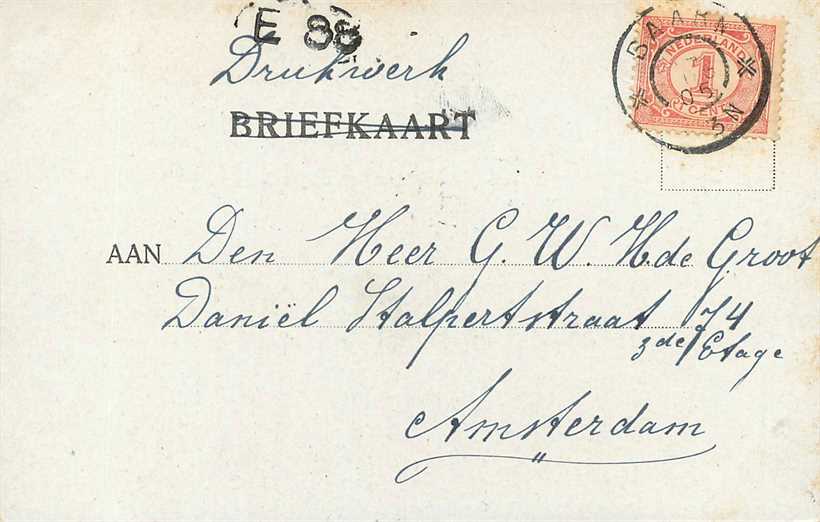 E 88
Drukwerk
BRIEFKAART
BAARN
05
3N
NEDERLAND
1
CENT
AAN Den Heer G. W. H. de Groot
Daniël Stalpertstraat 74
3de Etage
Amsterdam